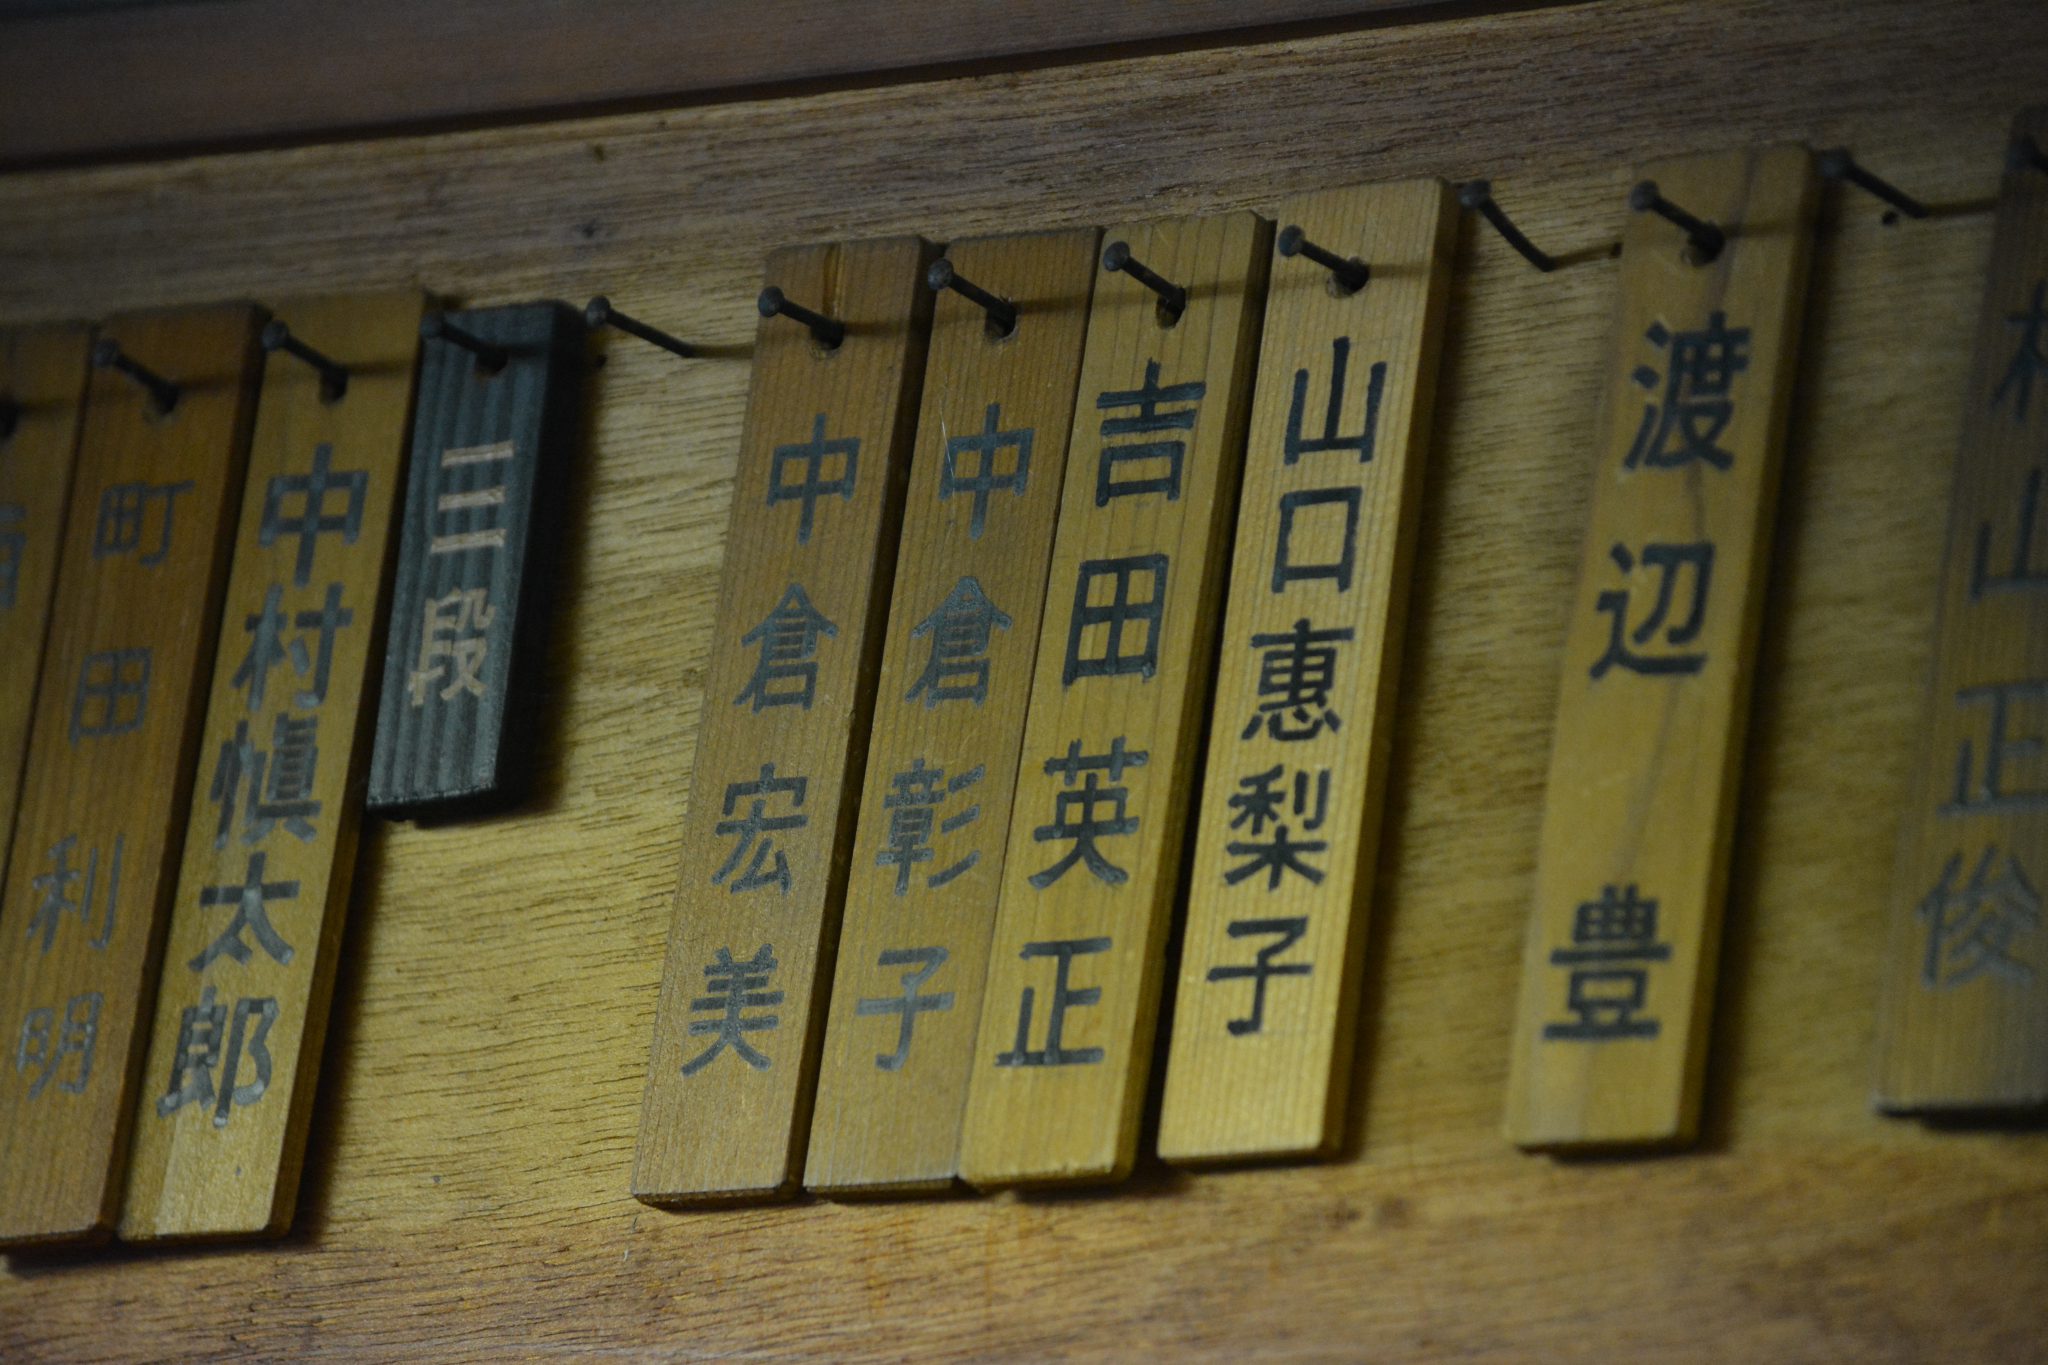 村山正俊
渡辺豊
山口恵梨子
吉田英正
中倉彰子
中倉宏美
三段
中村慎太郎
町田利明